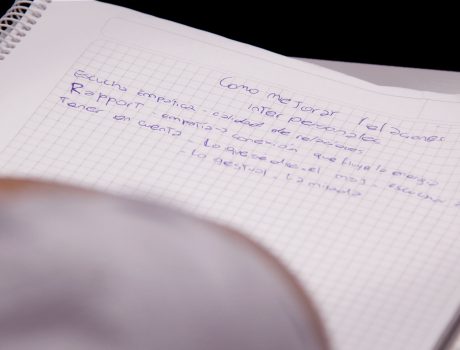 Como mejorar relaciones
inter personales
Escucha empatica - calidad de relaciones
Rapport - empatia y conexión que fluya la energia
Tener en cuenta - Lo que se dice - el - escuchar
- Lo gestual - La mirada